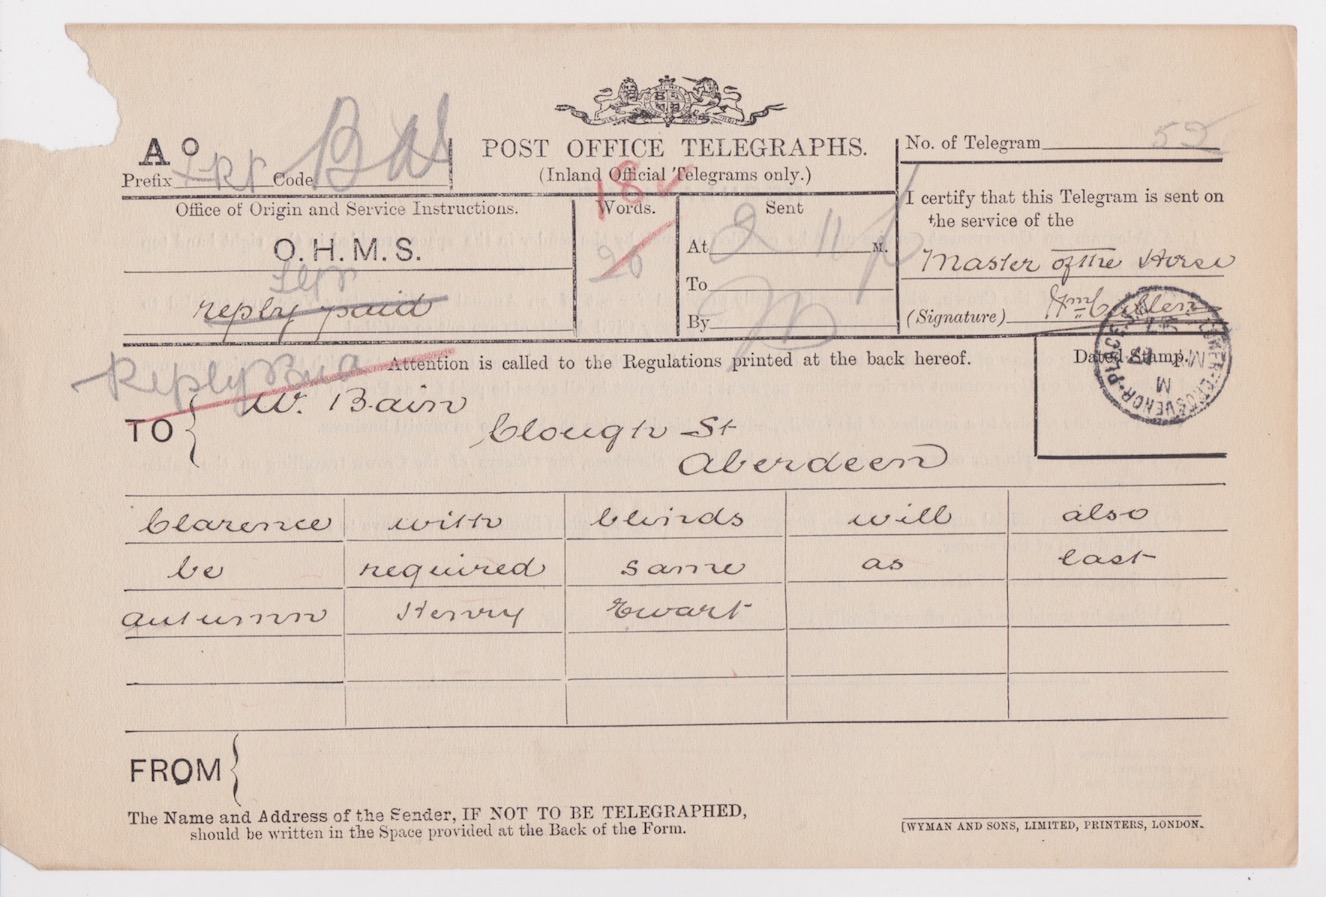 A o
Prefix Code
POST OFFICE TELEGRAPHS.
(Inland Official Telegrams only.)
No. of Telegram 52
I certify that this Telegram is sent on
the service of the
Master of the Horse
(Signature)
Office of Origin and Service Instructions.
O.H.M.S.
reply paid
Words.
18
20
Sent
At 2 11 p M.
To
By
Attention is called to the Regulations printed at the back hereof.
Dated Stamp.
LOWER-GROSVENOR-PLACE
Reply
TO W. Bain
Clough St
Aberdeen
Clarence with blinds will also
be required same as last
autumn Henry Ewart
FROM
The Name and Address of the Sender, IF NOT TO BE TELEGRAPHED,
should be written in the Space provided at the Back of the Form.
[WYMAN AND SONS, LIMITED, PRINTERS, LONDON.